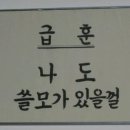 급훈
나도
쓸모가 있을껄